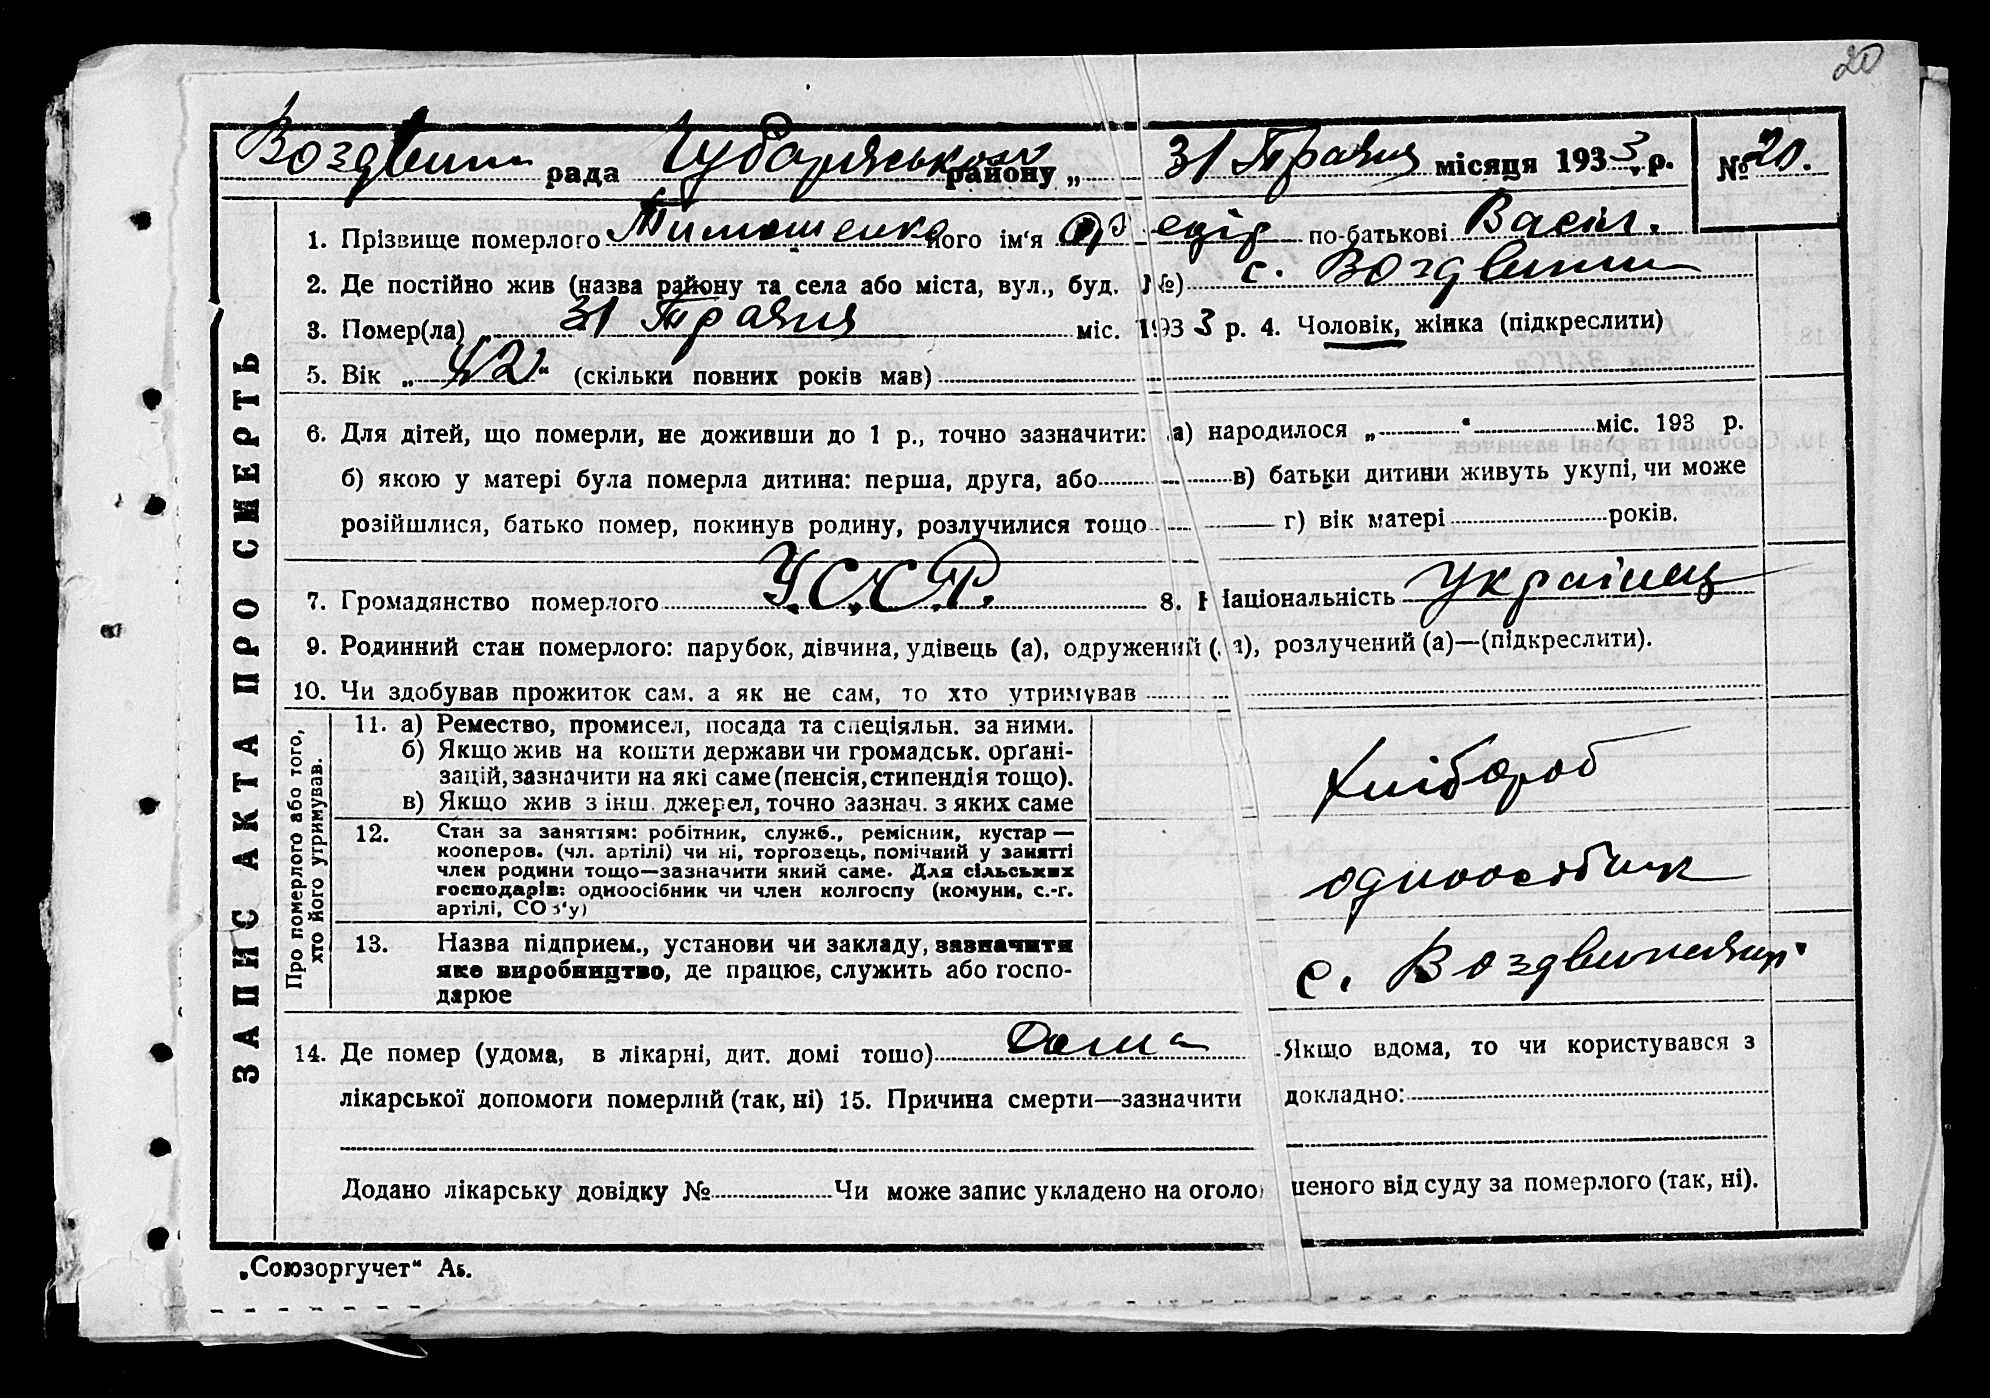 20
Воздвиж рада Чубарівського району „ 31 Травня місяця 1933 р. № 20.
ЗАПИС АКТА ПРО СМЕРТЬ
1. Прізвище померлого Тимошенко його ім‘я Федір по-батькові Васил.
2. Де постійно жив (назва району та села або міста, вул., буд. №) с. Воздвиж
3. Помер(ла) 31 Травня міс. 1933 р. 4. Чоловік, жінка (підкреслити)
5. Вік „ 42 “ (скільки повних років мав)
6. Для дітей, що померли, не доживши до 1 р., точно зазначити: а) народилося „ “ міс. 193 р.
б) якою у матері була померла дитина: перша, друга, або в) батьки дитини живуть укупі, чи може
розійшлися, батько помер, покинув родину, розлучилися тощо г) вік матері років.
7. Громадянство померлого У.С.С.Р. 8. Національність Українец
9. Родинний стан померлого: парубок, дівчина, удівець (а), одружений (а), розлучений (а)—(підкреслити).
10. Чи здобував прожиток сам. а як не сам, то хто утримував
Про померлого або того,
хто його утримував.
11. а) Ремество, промисел, посада та спеціяльн. за ними.
б) Якщо жив на кошти держави чи громадськ. орґані-
зацій, зазначити на які саме (пенсія, стипендія тощо).
в) Якщо жив з інш. джерел, точно зазнач. з яких саме
Хлібороб
12. Стан за заняттям: робітник, служб., ремісник, кустар —
кооперов. (чл. артілі) чи ні, торговець, помічний у занятті
член родини тощо—зазначити який саме. Для сільських
господарів: одноосібник чи член колгоспу (комуни, с.-г.
артілі, СОЗ‘у)
одноосібник
13. Назва підприєм., установи чи закладу, зазначити
яке виробництво, де працює, служить або госпо-
дарює
с.
14. Де помер (удома, в лікарні, дит. домі тощо) Дома Якщо вдома, то чи користувався з
лікарської допомоги померлий (так, ні) 15. Причина смерти—зазначити докладно:
Додано лікарську довідку № Чи може запис укладено на оголошеного від суду за померлого (так, ні).
„Союзоргучет“ Аs.